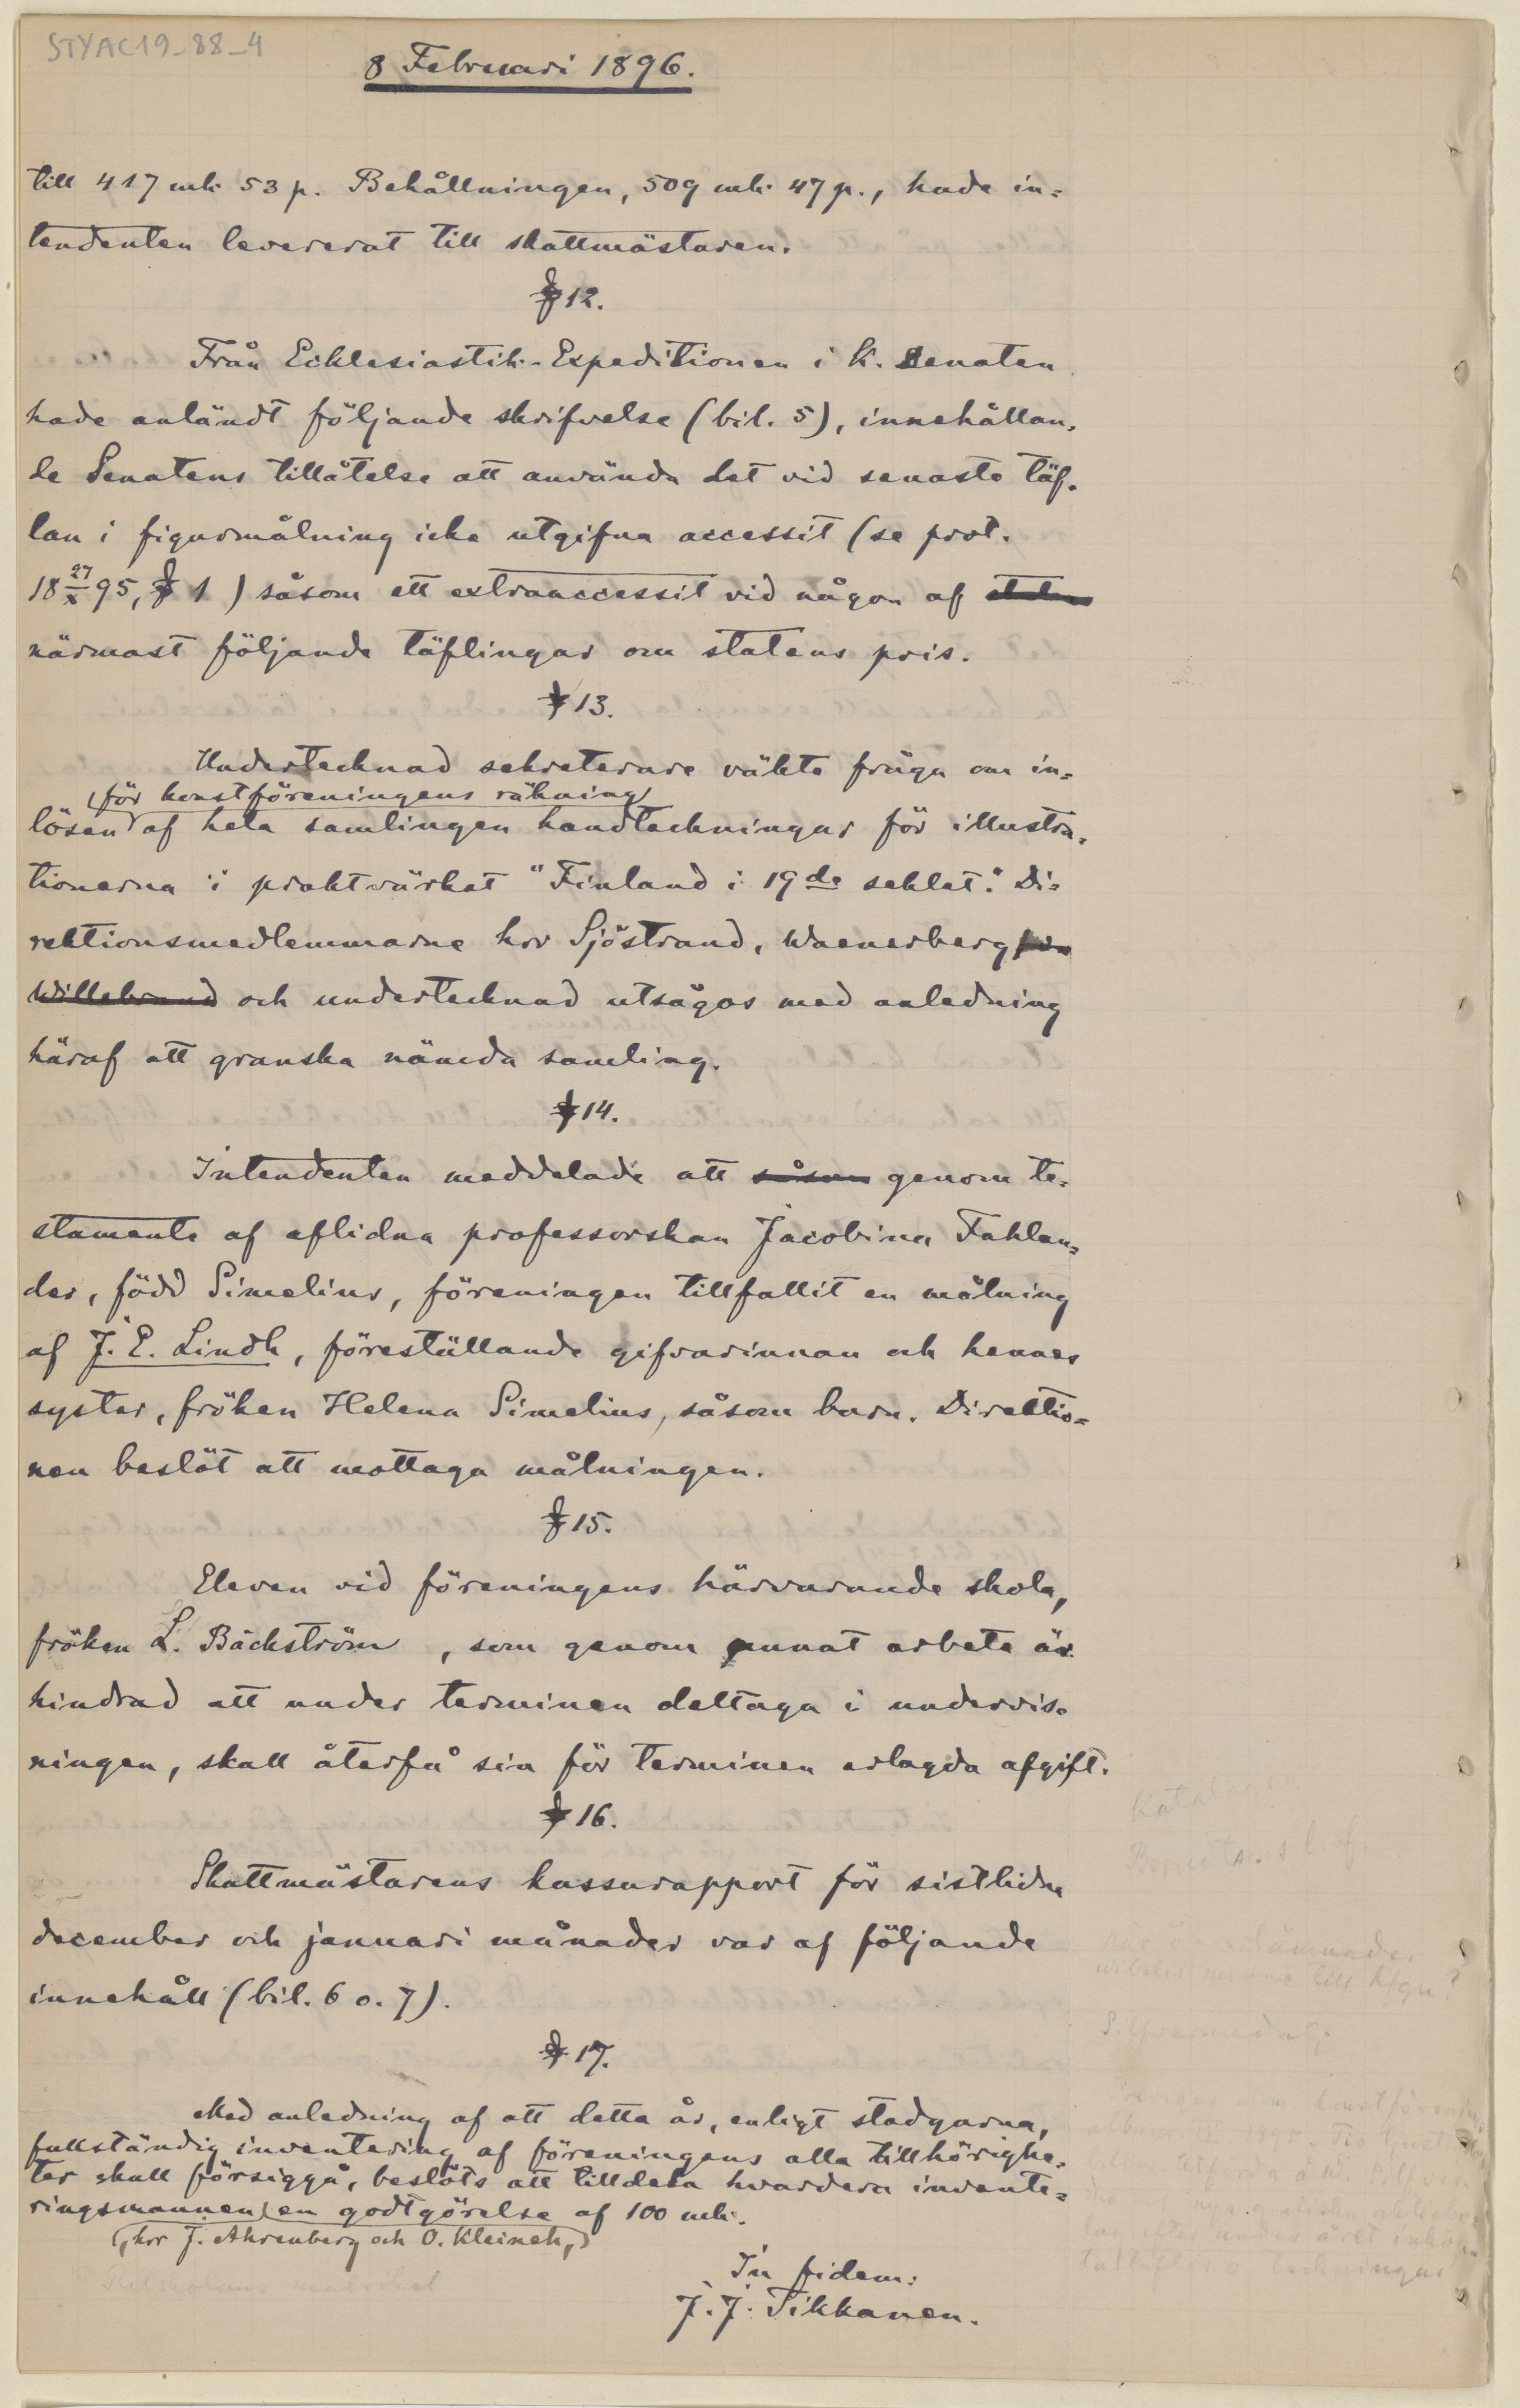 STYAC19_88_4
8 Februari 1896.
till 417 mk 53 p. Behållningen, 509 mk 47 p., hade in=
tendenten levererat till skattmästaren.
§ 12.
Från Ecklesiastik-Expeditionen i K. Senaten
hade anländt följande skrifvelse (bil. 5), innehållan-
de Senatens tillåtelse att använda det vid senaste täf-
lan i figurmålning icke utgifna accessit (se prot.
18 27/X 95, § 1) såsom ett extraaccessit vid någon af
närmast följande täflingar om statens pris.
§ 13.
Undertecknad sekreterare väkte fråga om in=
(för konstföreningens räkning)
lösen af hela samlingen handteckningar för illustra-
tionerna i praktvärket "Finland i 19de seklet". Di=
rektionsmedlemmarne hrr Sjöstrand, Waenerberg
Willebrand och undertecknad utsågos med anledning
häraf att granska nämda samling.
§ 14.
Intendenten meddelade att såsom genom te-
stamente af aflidna professorskan Jacobina Fahlan=
der, född Simelius, föreningen tillfallit en målning
af J. E. Lindh, föreställande gifvarinnan och hennes
syster, fröken Helena Simelius, såsom barn. Direktio=
nen beslöt att mottaga målningen.
§ 15.
Eleven vid föreningens härvarande skola,
fröken L. Bäckström, som genom annat arbete är
hindrad att under terminen deltaga i undervis-
ningen, skall återfå sin för terminen erlagda afgift.
§ 16.
Skattmästarens kassarapport för sistlidna
december och januari månader var af följande
innehåll (bil. 6 o. 7).
§ 17.
Med anledning af att detta år, enligt stadgarna,
fullständig inventering af föreningens alla tillhörighe-
ter skall försiggå, beslöts att tilldela hvardera invente=
ringsmannen en godtgörelse af 100 mk.
(, hrr J. Ahrenberg och O. Kleineh,)
In fidem:
J. J. Tikkanen.